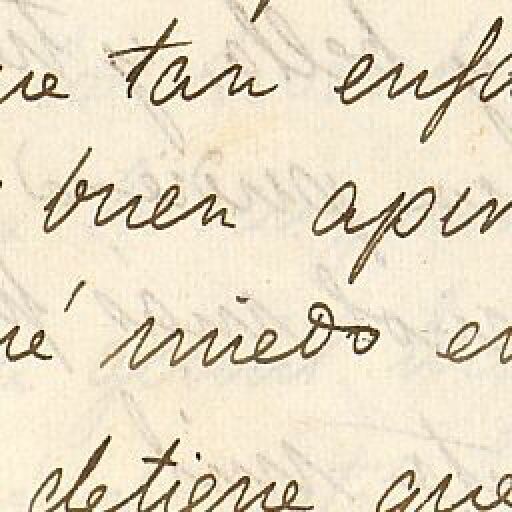 ue tan enfa
buen apin
ué miedo en
detiene que